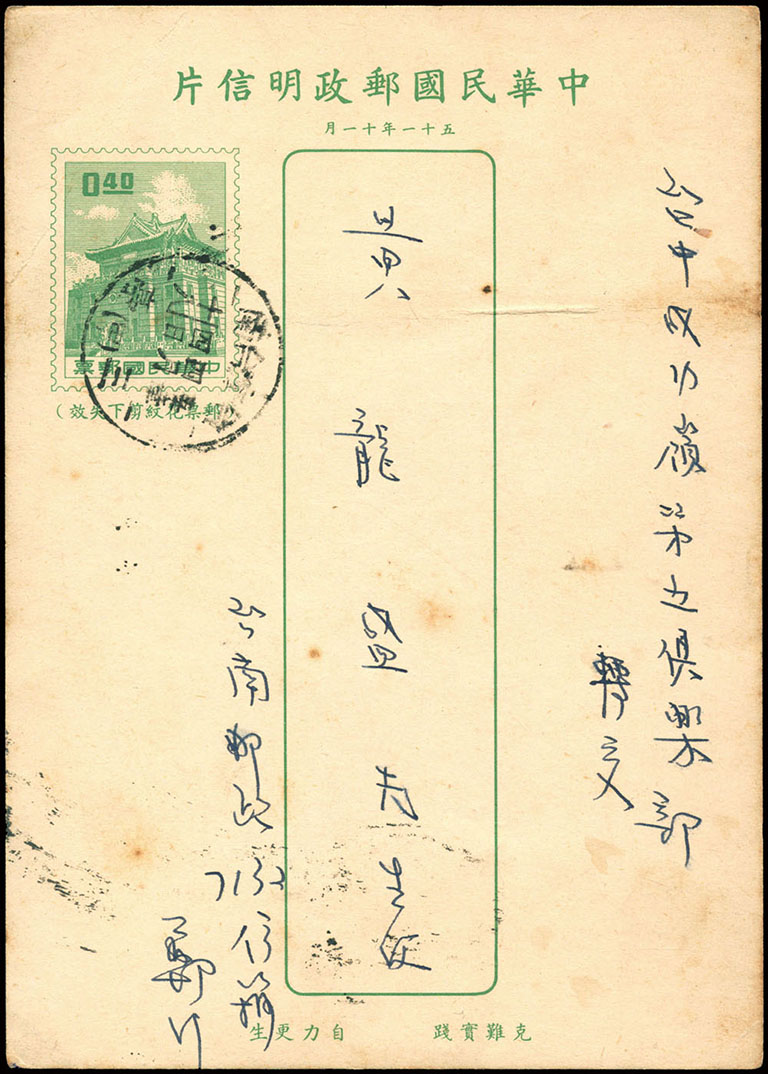 中華民國郵政明信片
五十一年十一月
台中成功嶺第五俱樂部
轉交
黃龍盛先生收
0 40
中華民國郵票
(郵票花紋剪下失效)
台南郵政
信箱
鄭
克難實踐 自力更生